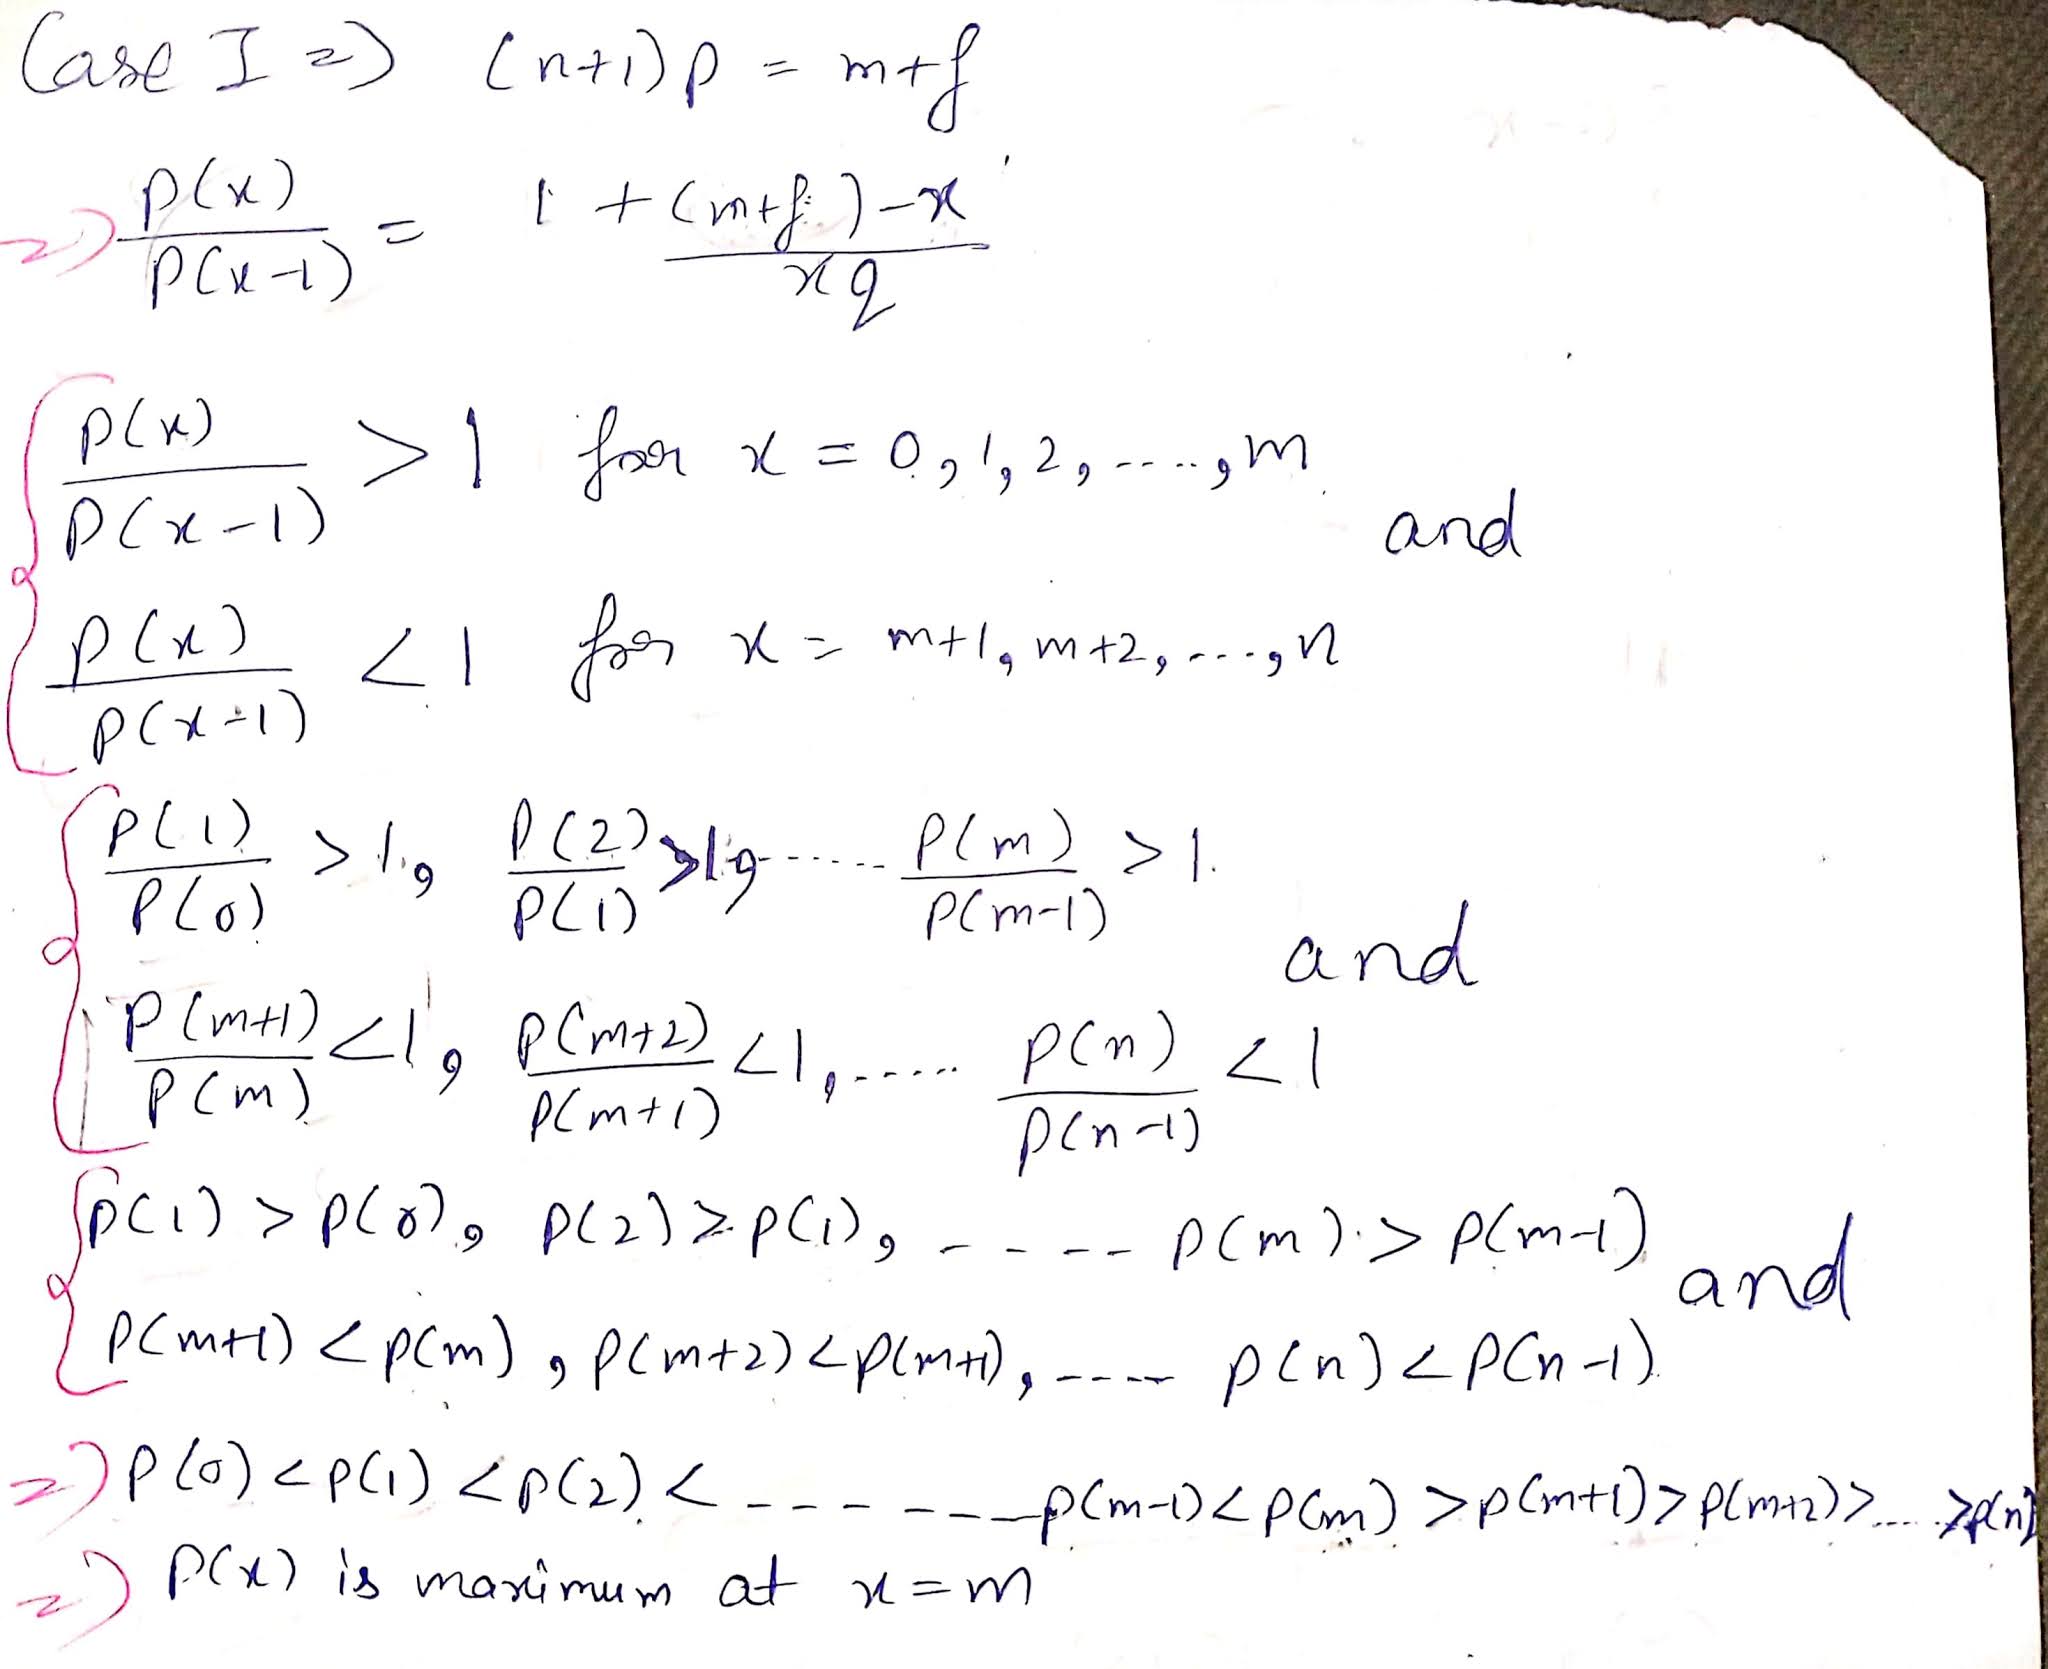 Case I => (n+1)p = m+f
=> p(x)/p(x-1) = 1 + (m+f)-x/xq
p(x)/p(x-1) > 1 for x = 0,1,2,-----,m and
p(x)/p(x-1) < 1 for x = m+1, m+2, ----, n
p(1)/p(0) > 1, p(2)/p(1) > 1, ------- p(m)/p(m-1) > 1. and
p(m+1)/p(m) < 1, p(m+2)/p(m+1) < 1, ------ p(n)/p(n-1) < 1
p(1) > p(0), p(2) > p(1), ---- p(m) > p(m-1) and
p(m+1) < p(m), p(m+2) < p(m+1), ---- p(n) < p(n-1).
=> p(0) < p(1) < p(2) < ------- p(m-1) < p(m) > p(m+1) > p(m+2) > ..... > p(n)
=> p(x) is maximum at x = m